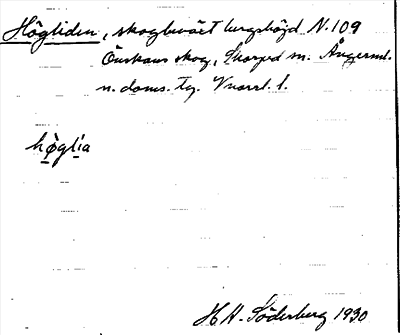 Högliden, skogbeväxt bergshöjd N. 109
Önskans skog, Skorped sn. Ångerml.
n. doms. tg. Vnorrl. l.
hø̀glia
H A. Söderberg 1930